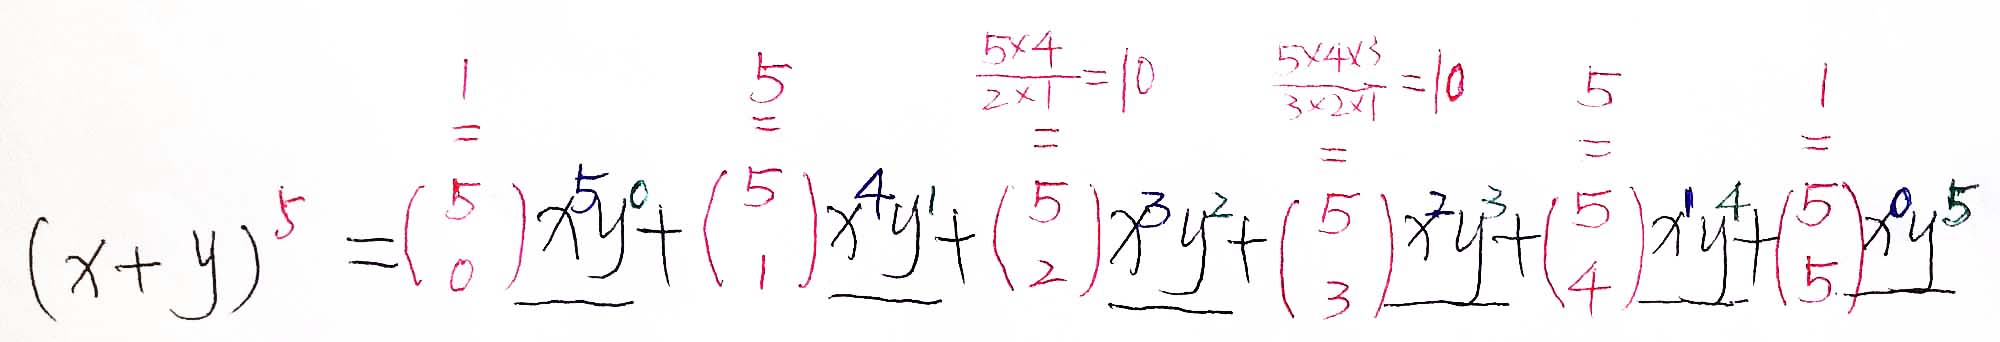 1 5 5×4/2×1=10 5×4×3/3×2×1=10 5 1
= = = = = =
(x+y)^5 = (5 0) x^5y^0 + (5 1) x^4y^1 + (5 2) x^3y^2 + (5 3) x^2y^3 + (5 4) x^1y^4 + (5 5) x^0y^5